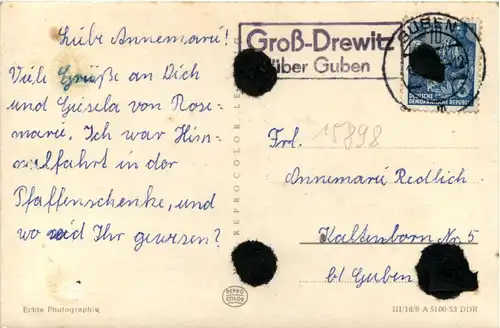 Liebe Annemarie!
Viele Grüße an Dich
und Gisela von Rose-
marie. Ich war Him-
melfahrt in der
Pfaffenschenke, und
wo seid Ihr gewesen?
Echte Photographie
REPROCOLOR
REPRO
COLOR
Groß-Drewitz
über Guben
GUBEN
DEUTSCHE
DEMOKRATISCHE REPUBLIK
15898
Frl.
Annemarie Redlich
Kaltenborn Nr. 5
bl Guben
III/18/6 A 5100/53 DDR